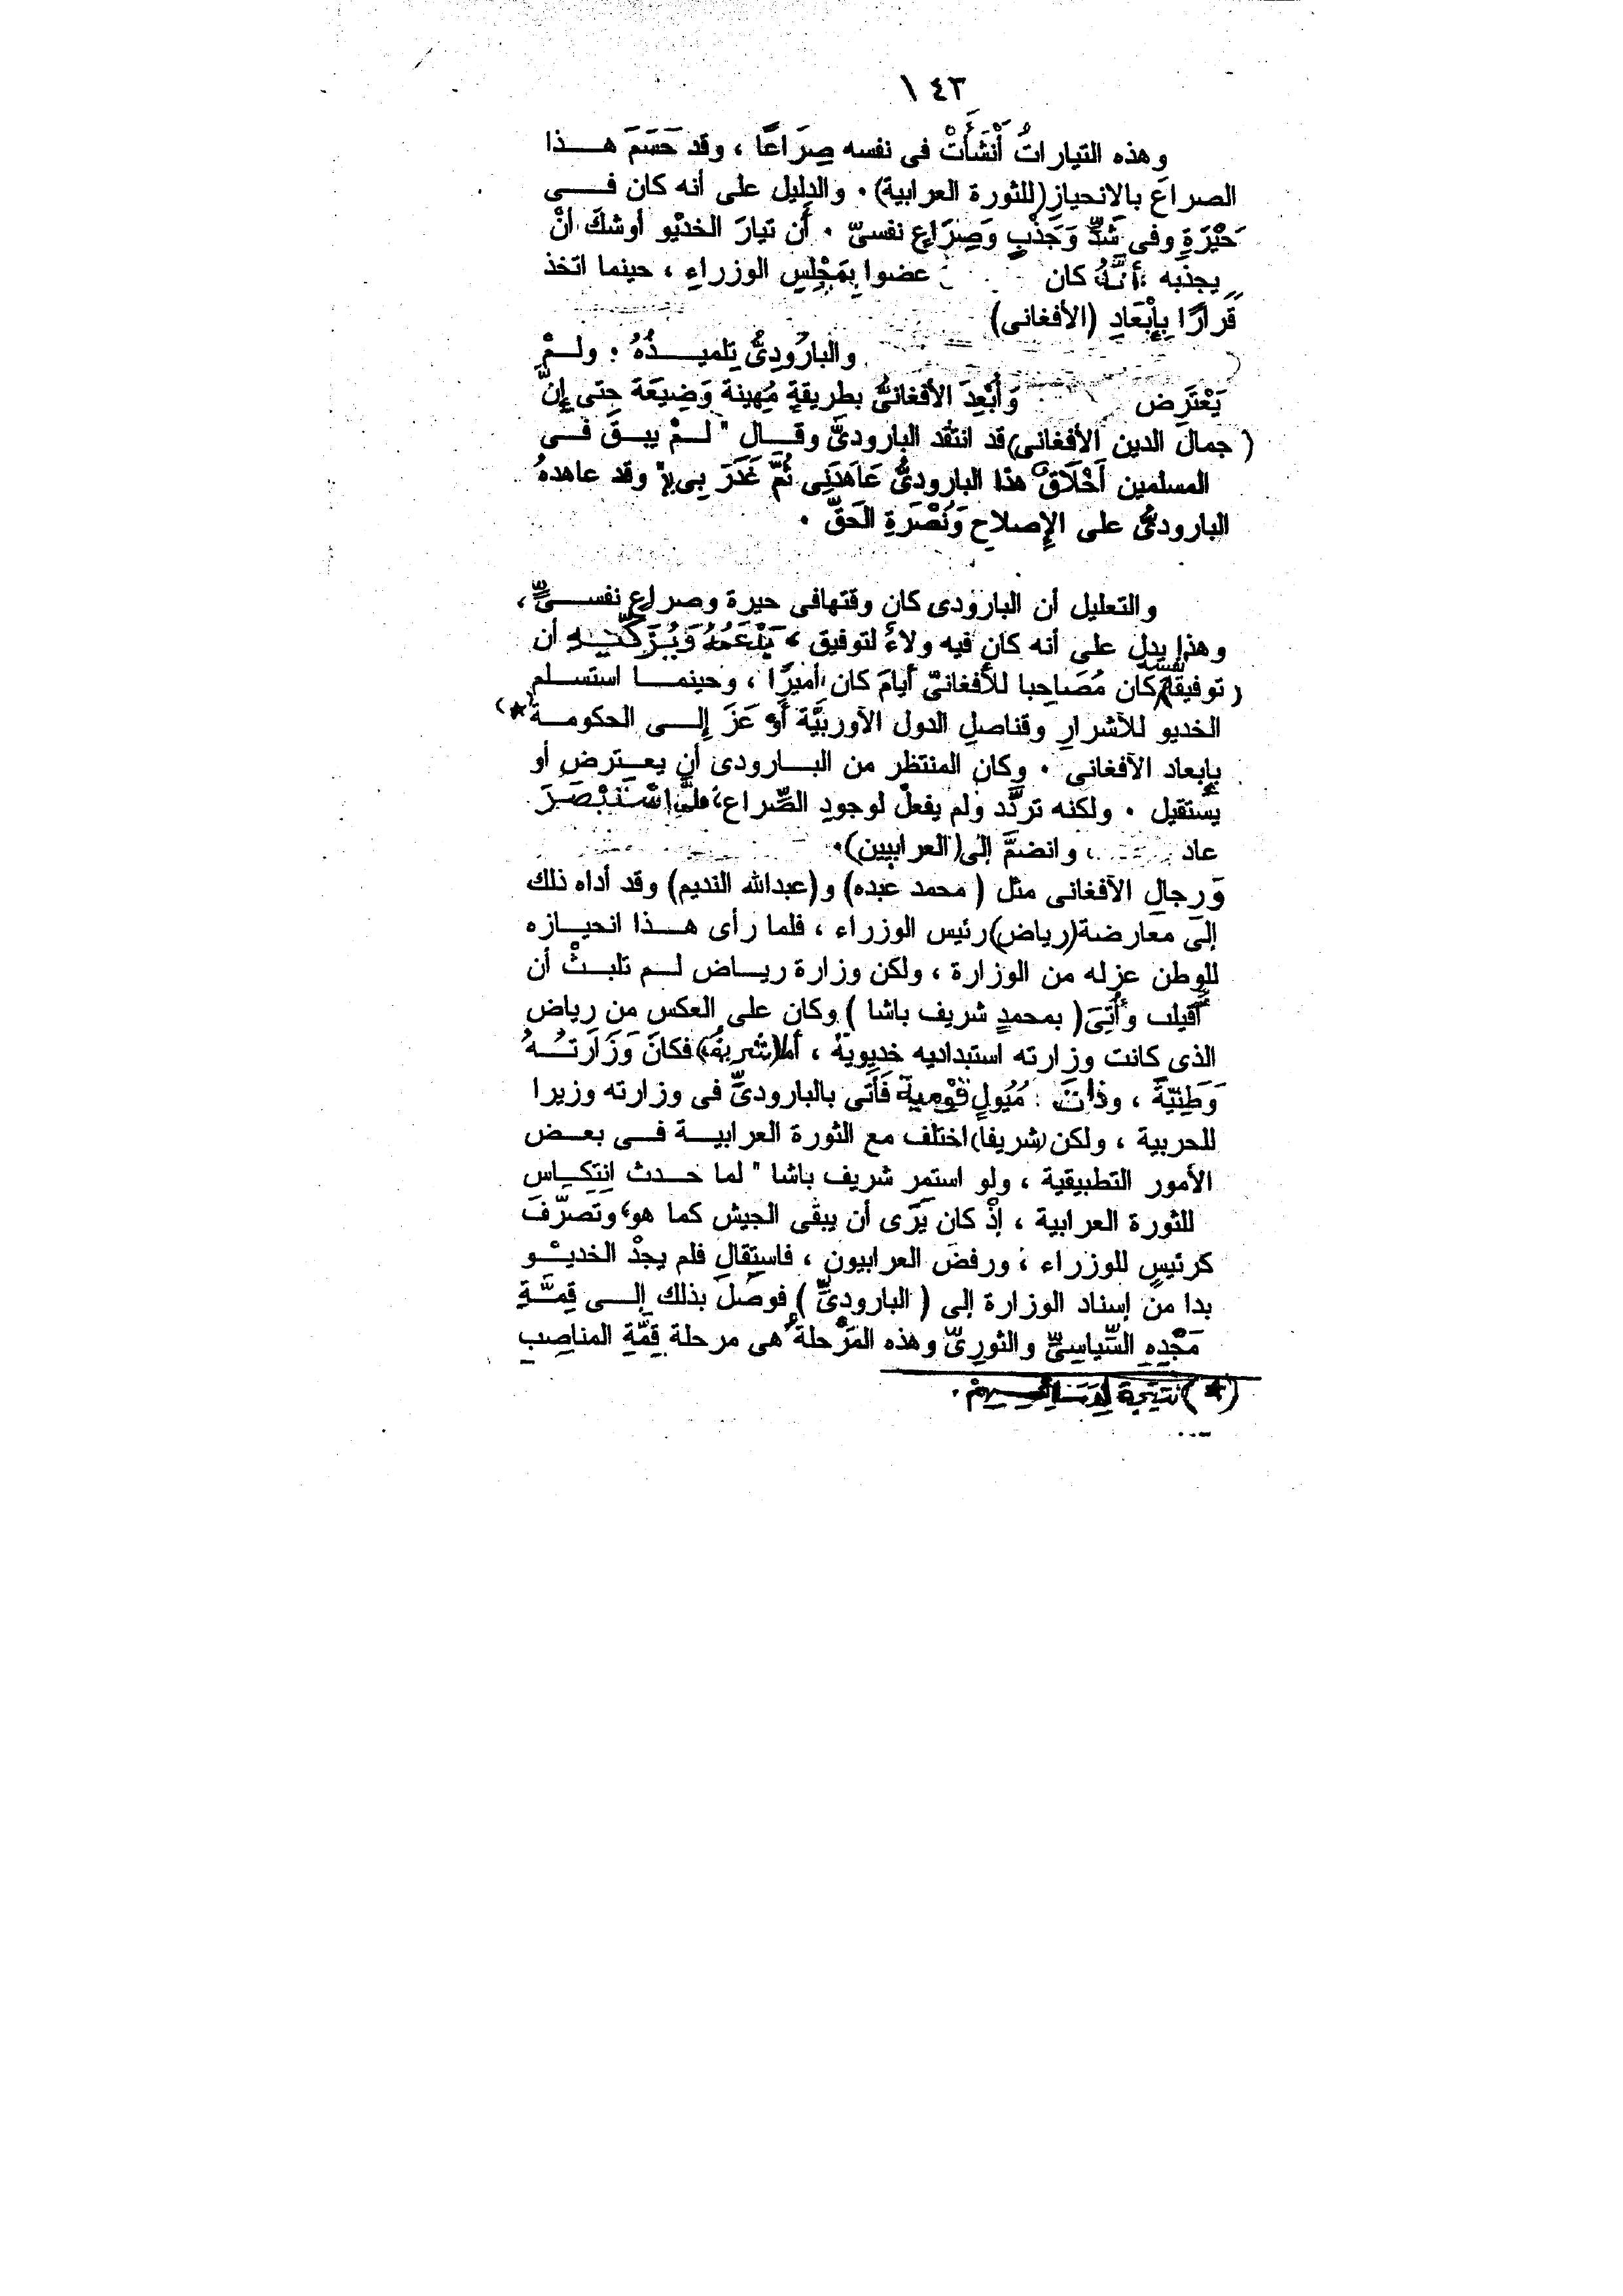 ١٤٣
وهذه التياراتُ أَنْشَأَتْ فى نفسه صِرَاعًا ، وقد حَسَمَ هـــذا
الصراعَ بالانحيازِ (للثورة العرابية) ٠ والدليل على أنه كان فــى
حَيْرَةٍ وفى شَدٍّ وَجَذْبٍ وَصِرَاعٍ نفسىّ ٠ أن تيارَ الخديْو أوشكَ أنْ
يجذبَه أَنَّهُ كان عضوا بِمَجْلِسِ الوزراءِ ، حينما اتخذ
قَرارًا بِإِبْعَادِ (الأفغانى)
والبارُودِىُّ تِلميـــذُهُ ٠ ولـمْ
يَعْتَرِض وَأُبْعِدَ الأفغانىُّ بطريقةٍ مُهِينة وَضِيعَة حتى إِنَّ
( جمالَ الدين الأفغانى) قد انتقد البارودىَّ وقــال " لــمْ يبـقَ فــى
المسلمين أَخْلَاقٌ هذا البارودىُّ عَاهَدَنِى ثُمَّ غَدَرَ بِى " وقد عاهدهُ
البارودىُّ على الإِصلاحِ وَنُصْرَةِ الحَقّ ٠
والتعليل أن البارودى كان وقتهافى حيرة وصراعٍ نفســىٍّ ،
وهذا يدل على أنه كان فيه ولاءٌ لتوفيق ، يَدْعَمُهُ وَيُزَكِّيـهِ أن
( توفيقا) نفسَه كان مُصَاحِبا للأفغانىّ أيامَ كان أميرًا ، وحينمــا استسلم
الخديو للأشرارِ وقناصلِ الدول الأوربيَّة أَوْ عَزَ إِلــى الحكومــة (*)
بإبعاد الأفغانى ٠ وكان المنتظر من البــارودى أن يعـترض أو
يستقيل ٠ ولكنه تردَّد ولم يفعلْ لوجودِ الصِّراع، فلمَّا اسْتَبْصَرَ
عاد ، وانضمَّ إلى (العرابيين) ٠
وَرجالِ الأفغانى مثل ( محمد عبده) و (عبدالله النديم) وقد أداه ذلك
إلى معارضة (رياض) رئيس الوزراء ، فلما رأى هــذا انحيــازه
للوطن عزله من الوزارة ، ولكن وزارة ريــاض لــم تلبـثْ أن
أُقيلت وأُتِىَ ( بمحمدٍ شريف باشا ) وكان على العكس من رياض
الذى كانت وزارته استبداديه خديوية ، أما (شريفٌ) فكانَ وَزَارَتــهُ
وَطنيّةً ، وذات مُيُولٍ قوْمية فأتى بالبارودىِّ فى وزارته وزيرا
للحربية ، ولكن (شريفا) اختلف مع الثورة العرابيــة فــى بعـض
الأمور التطبيقية ، ولو استمر شريف باشا " لما حــدث انتكــاس
للثورة العرابية ، إذْ كان يَرَى أن يبقى الجيش كما هو، وتصرَّفَ
كرئيسٍ للوزراء ، ورفض العرابيون ، فاستقال فلم يجدْ الخديــو
بدا من إسناد الوزارة إلى ( البارودىِّ ) فوصلَ بذلك إلــى قِمـَّـةِ
مَجْدِهِ السِّياسِىِّ والثورِىّ وهذه المَرْحلة هى مرحلة قِمَّةِ المناصِبِ
(*) نتيجة لِدَسَائِسِهِمْ .